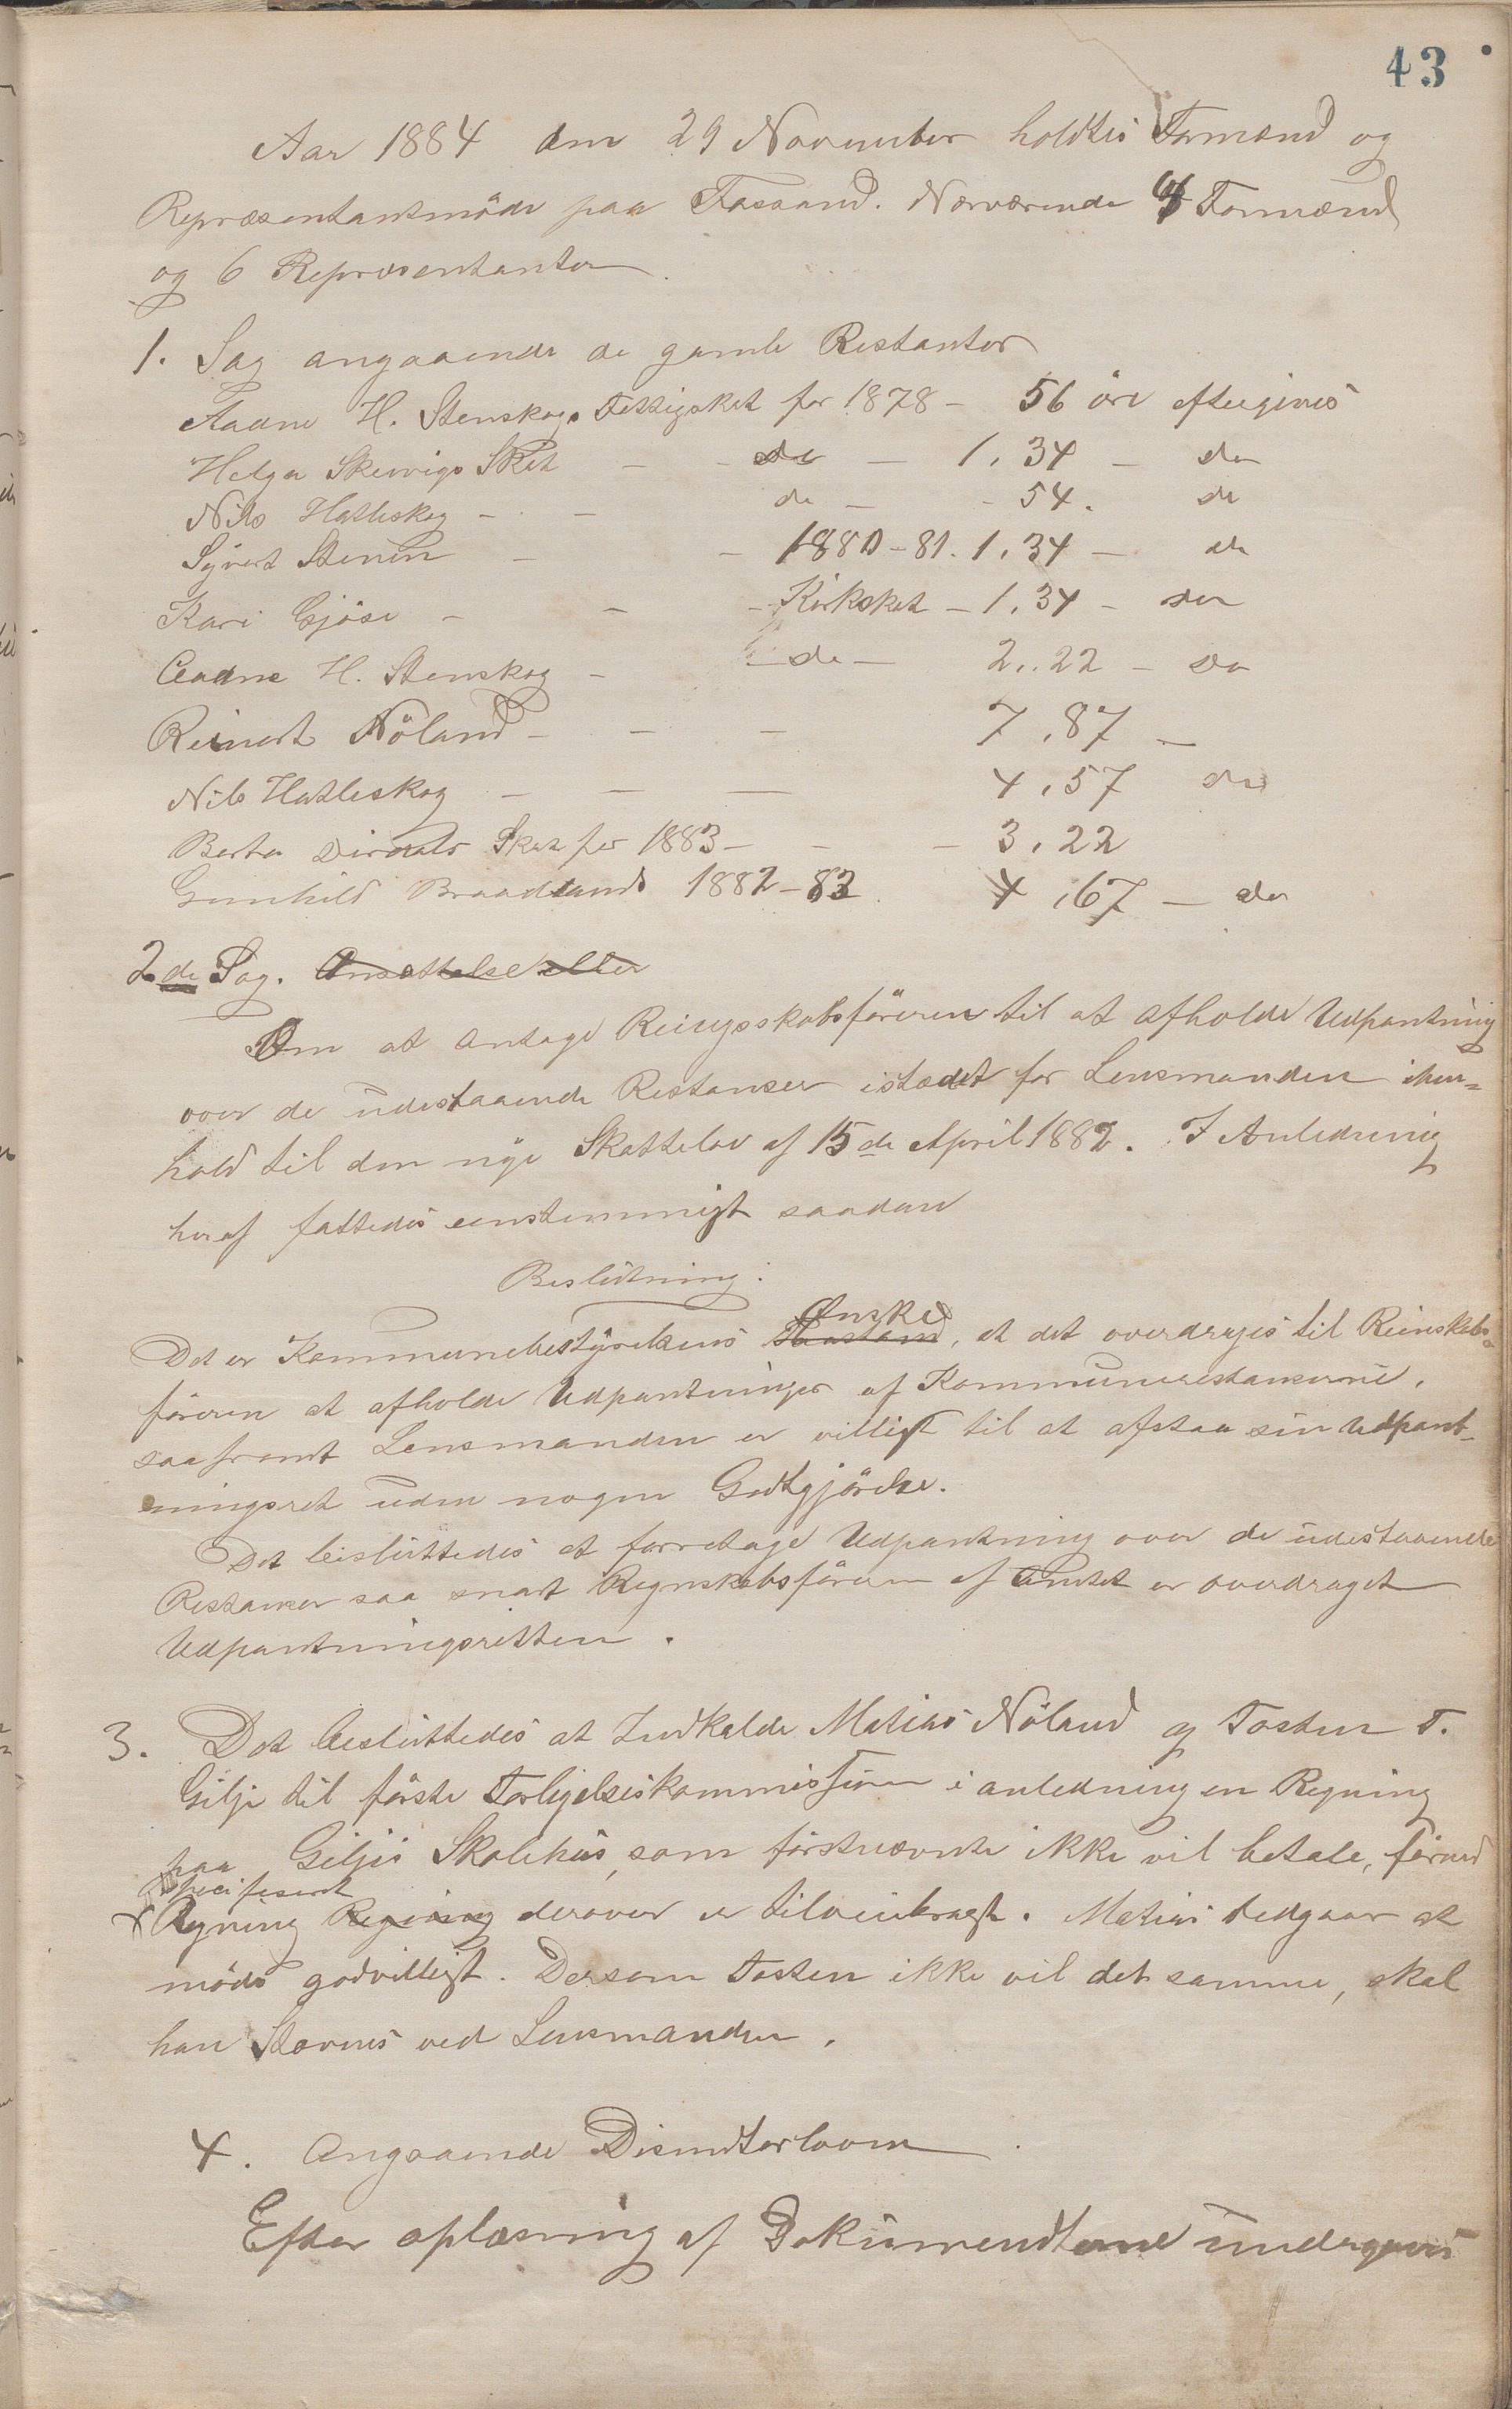 43
Aar 1884 den 29 November holdtes Formænd og
Repræsentantmöde paa Fossand. Nærværende 4 Formænd
og 6 Repræsentanter.
1. Sag angaaende de gamle Restantser
Aadne H. Stenskogs Fattigskat for 1878 - 56 öre eftergives
Helga Skervigs Skat - - do - 1,34 - do
Nils Hatleskog - - do - - 54. do
Syvert Stenen - - 1880-81. 1,34 - do
Kari Gjöse - - - Kirkskat - 1,34 - do
Aadne H. Stenskog - - do - 2,22 - do
Reinert Nöland - - - 7,87 -
Nils Hatleskog - - - 4,57 do
Berta Dirdals Skat for 1883 - - - 3,22
Gunhild Braadlands 1882-83. 4,67 - do
2de Sag. Ansættelse eller
Om at antage Reingsskabsföreren til at afholde Udpantning
over de udestaaende Restanser istædet for Lensmanden ihen=
hold til den nye Skattelov af 15de April 1882. I Anledning
heraf fattedes eenstemmigt saadan
Beslutning:
Ønske
Det er Kommunebestyrelsens, at det overdrages til Reinskabs-
föreren at afholde Udpantninger af Kommunerestanserne,
saafremt Lensmanden er villigt til at afstaa sin Udpant-
ningsret uden nogen Godtgjörelse.
Det besluttedes at foretage Udpantning over de udestaaende
Restanser saa snart Regnskabsföreren af Amtet er overdraget
Udpantningsretten.
3. Det besluttedes at Indkalde Matias Nöland og Tosten T.
Gilje til förste Forligelseskommission i anledning en Regning
paa Giljes Skolehus, som förstnævnte ikke vil betale, förend
specifisert
x Regning Regning derover er tilveiebragt. Matias vedgaar at
möde godvilligt. Dersom Tosten ikke vil det samme, skal
han Stevnes ved Lensmanden.
4. Angaaende Disenterloven
Efter oplæsning af Dokumendterne